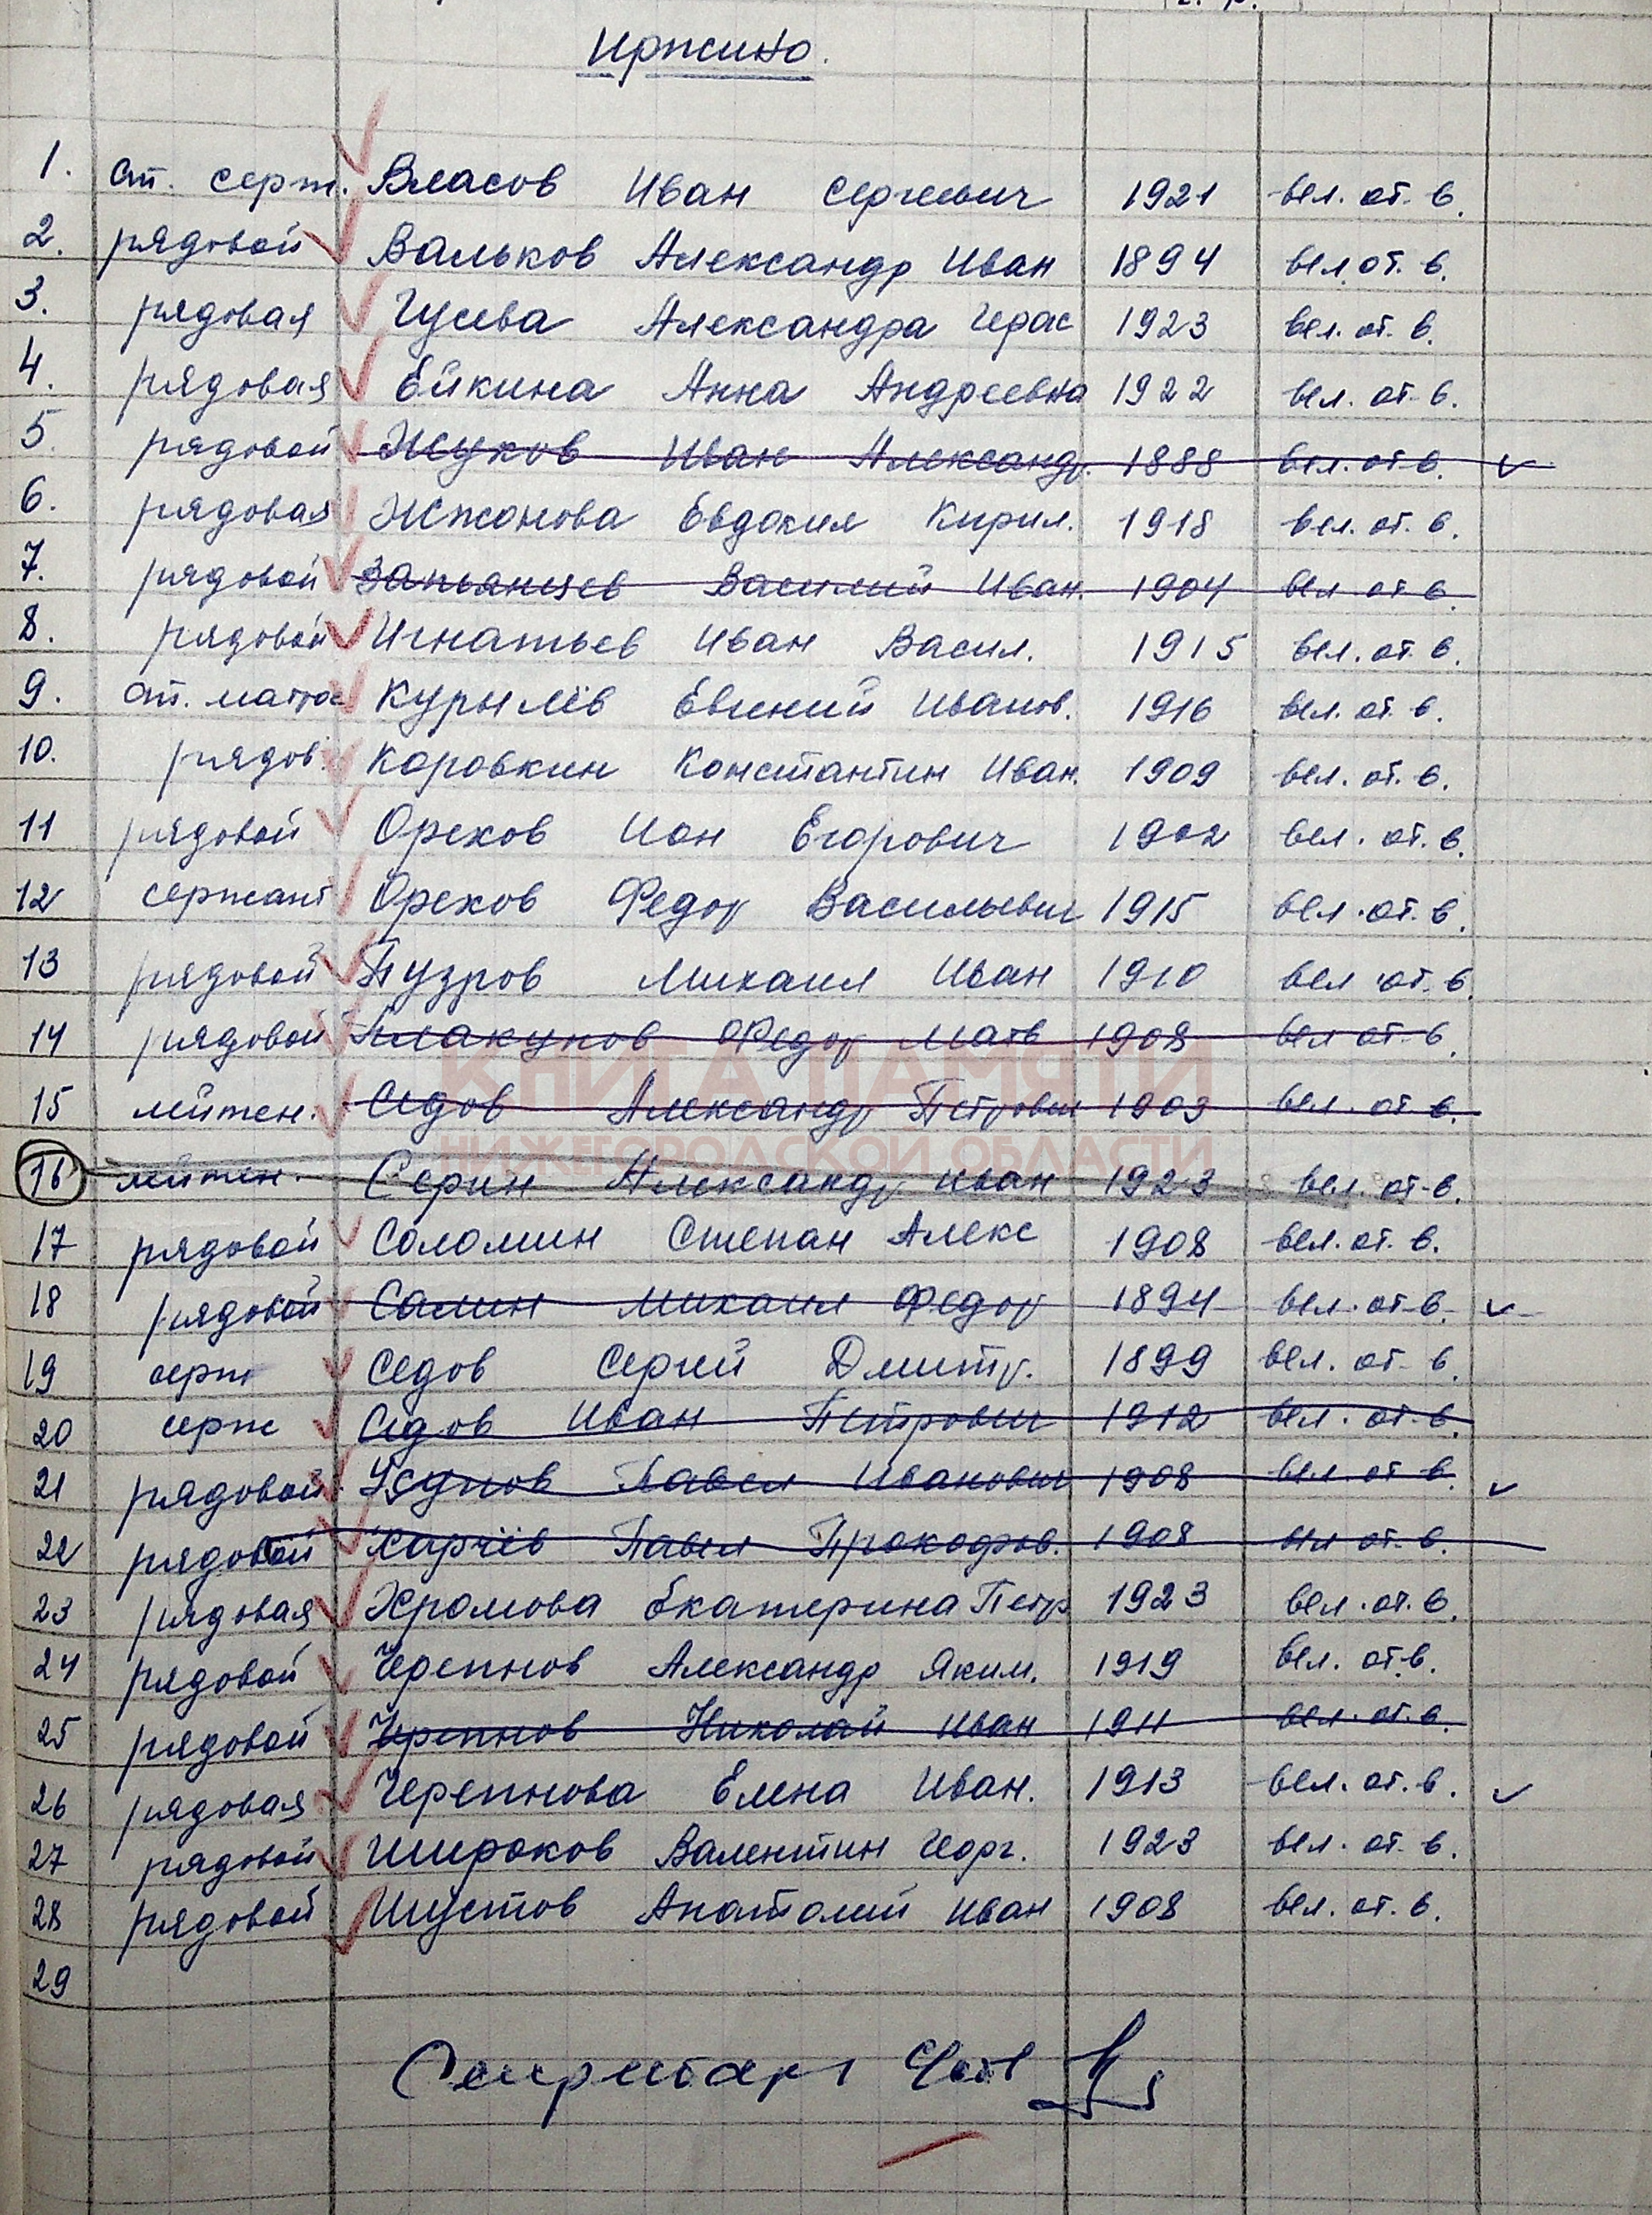 Иржино.
1. ст. серж. Власов Иван Сергеевич 1921 вел. от. в.
2. рядовой Вальков Александр Иван 1894 вел. от. в.
3. рядовая Гусева Александра Герас 1923 вел. от. в.
4. рядовая Ейкина Анна Андреевна 1922 вел. от. в.
5. рядовой Жуков Иван Александр. 1888 вел. от. в.
6. рядовая Жжонова Евдокия Кирил. 1918 вел. от. в.
7. рядовой Запьянцев Василий Иван. 1904 вел. от. в.
8. рядовой Игнатьев Иван Васил. 1915 вел. от. в.
9. ст. матрос Курылёв Евгений Иванов. 1916 вел. от. в.
10. рядов. Коровкин Константин Иван. 1909 вел. от. в.
11 рядовой Орехов Ион Егорович 1902 вел. от. в.
12 сержант Орехов Федор Васильевич 1915 вел. от. в.
13 рядовой Пузров Михаил Иван 1910 вел. от. в.
14 рядовой Плакунов Федор Матв 1908 вел от. в.
КНИГА ПАМЯТИ
15 лейтен. Седов Александр Петрович 1903 вел. от в.
НИЖЕГОРОДСКОЙ ОБЛАСТИ
16 лейтен. Серин Александр Иван 1923 вел. от. в.
17 рядовой Соломин Степан Алекс 1908 вел. от. в.
18 рядовой Салин Михаил Федор 1894 вел. от. в.
19 серж Седов Сергей Дмитр. 1899 вел. от. в.
20 серж Седов Иван Петрович 1912 вел. от. в.
21 рядовой Павел Иванович 1908 вел. от. в.
22 рядовой Харчёв Павел Прокофов. 1908 вел от. в.
23 рядовая Хромова Екатерина Петр 1923 вел. от. в.
24 рядовой Черепнов Александр Яким. 1919 вел. от. в.
25 рядовой Черепнов Николай Иван 1911 вел. от. в.
26 рядовая Черепнова Елена Иван. 1913 вел. от. в.
27 рядовой Широков Валентин Георг. 1923 вел. от. в.
28 рядовой Шустов Анатолий Иван 1908 вел. от. в.
29
Секретарь